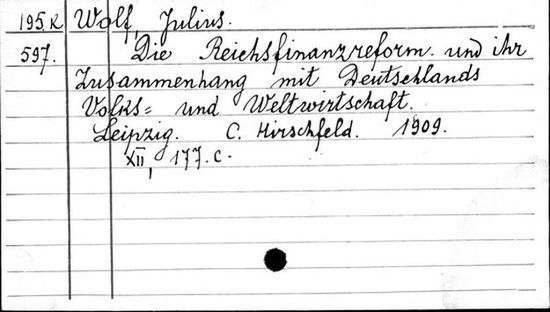 195.K Wolf, Julius.
597. Die Reichsfinanzreform und ihr
Zusammenhang mit Deutschlands
Volks= und Weltwirtschaft.
Leipzig. C. Hirschfeld. 1909.
XII, 177.c.